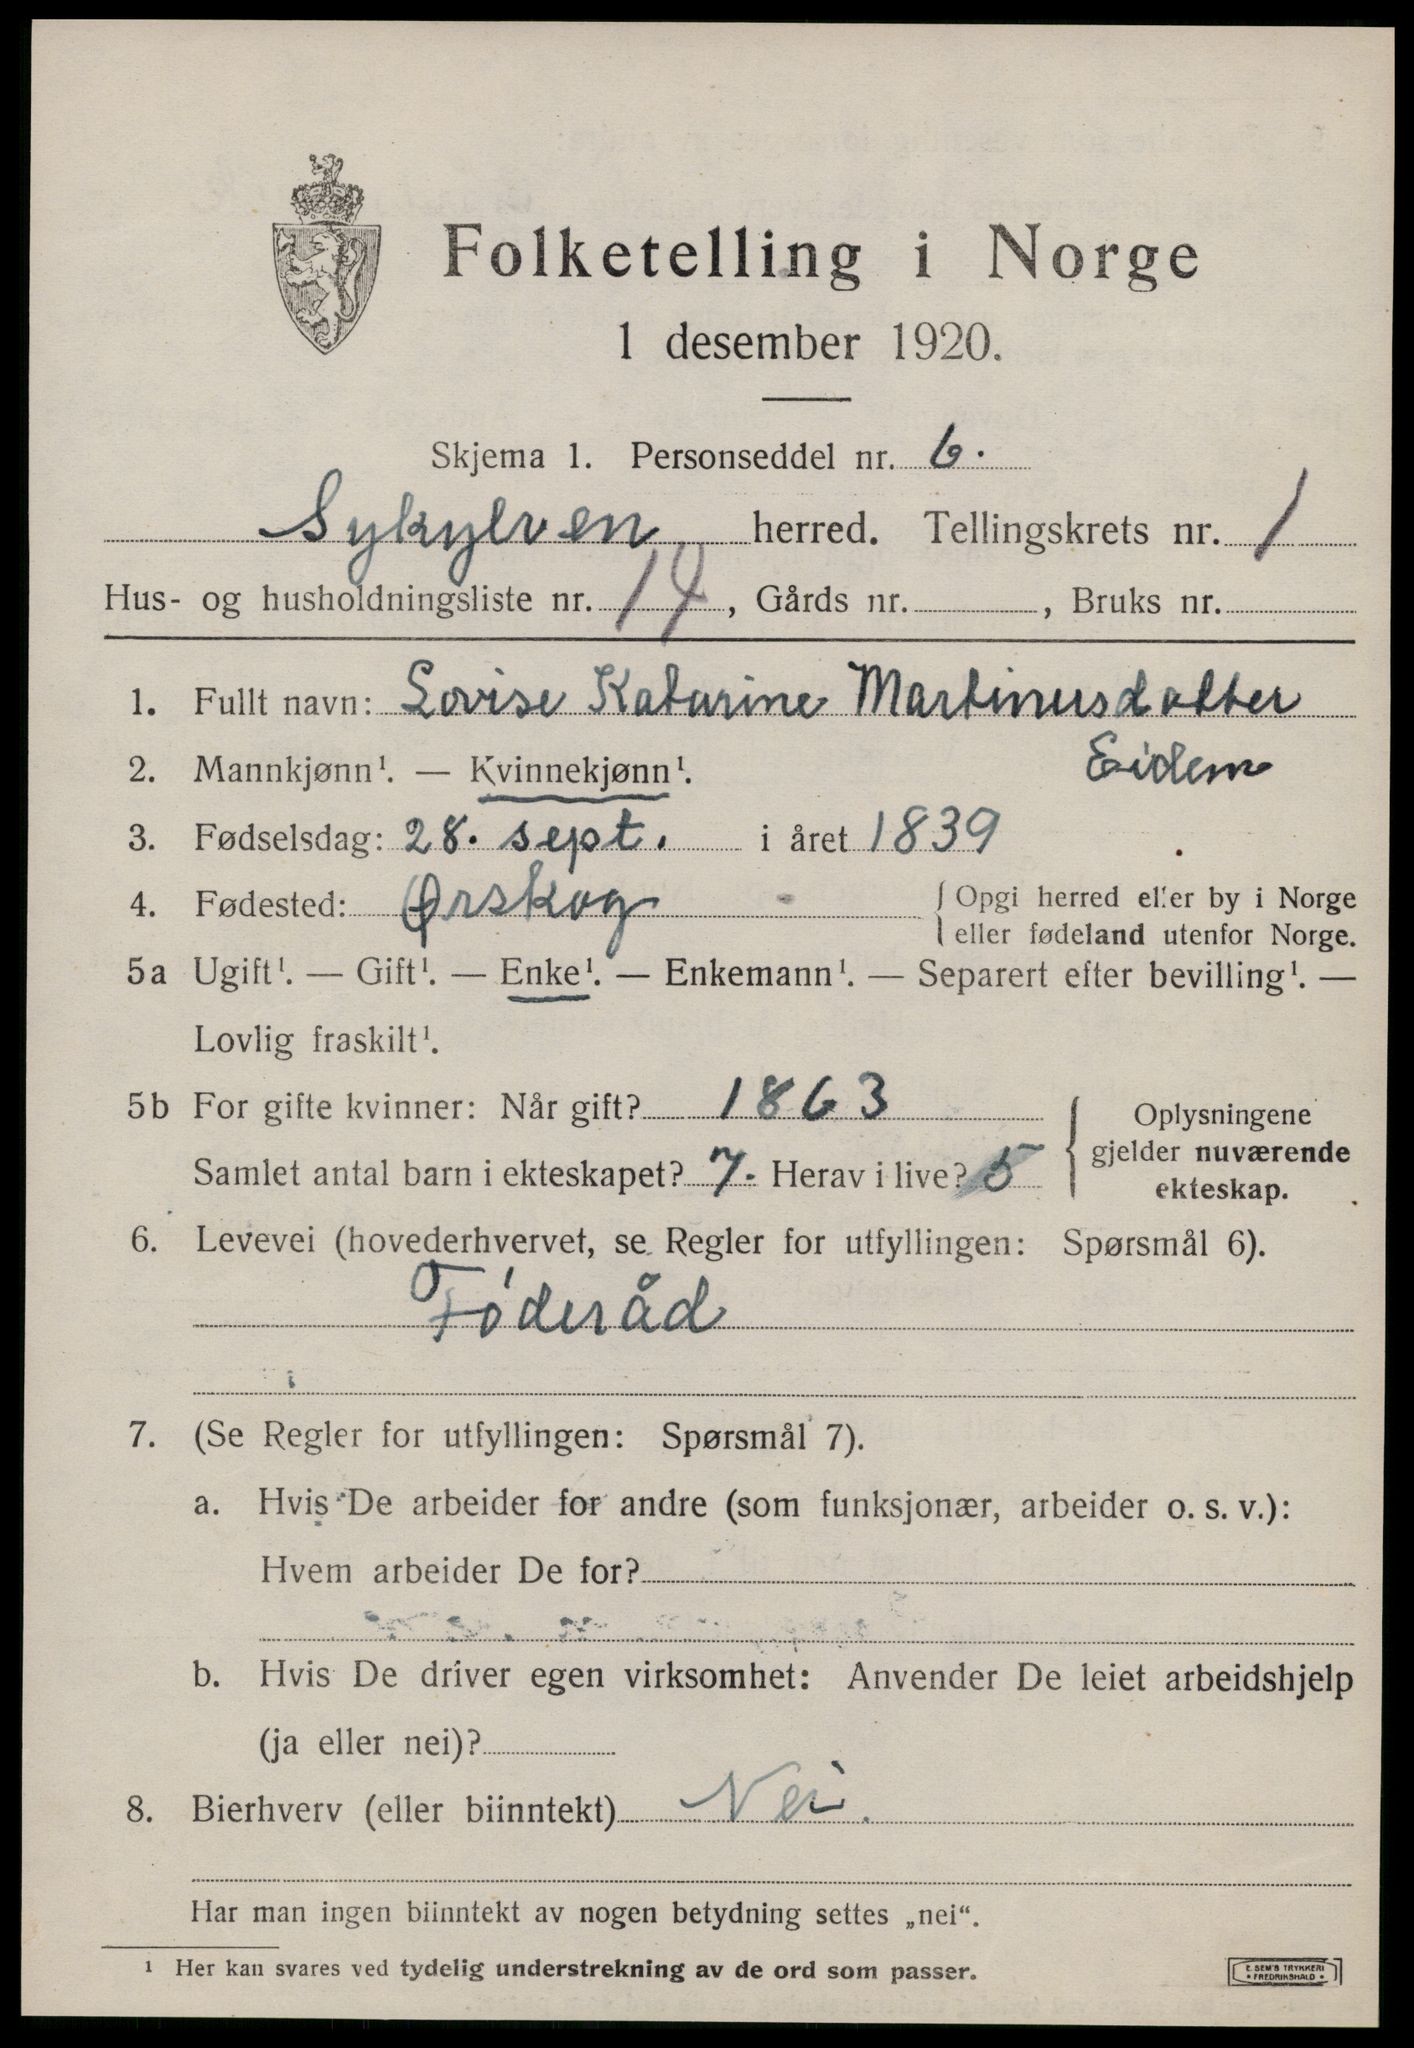 Folketelling i Norge
1 desember 1920.
Skjema 1. Personseddel nr. 6.
Sykylven herred. Tellingskrets nr. 1
Hus- og husholdningsliste nr. 14, Gårds nr. , Bruks nr.
1. Fullt navn: Lovise Katarine Martinusdatter
Eidem
2. Mannkjønn¹. — Kvinnekjønn¹.
3. Fødselsdag: 28. sept. i året 1839
4. Fødested: Ørskog { Opgi herred eller by i Norge
eller fødeland utenfor Norge.
5a Ugift¹. — Gift¹. — Enke¹. — Enkemann¹. — Separert efter bevilling¹. —
Lovlig fraskilt¹.
5b For gifte kvinner: Når gift? 1863
Samlet antal barn i ekteskapet? 7. Herav i live? 5
{ Oplysningene
gjelder nuværende
ekteskap.
6. Levevei (hovederhvervet, se Regler for utfyllingen: Spørsmål 6).
Føderåd
7. (Se Regler for utfyllingen: Spørsmål 7).
a. Hvis De arbeider for andre (som funksjonær, arbeider o. s. v.):
Hvem arbeider De for?
b. Hvis De driver egen virksomhet: Anvender De leiet arbeidshjelp
(ja eller nei)?
8. Bierhverv (eller biinntekt) Nei.
Har man ingen biinntekt av nogen betydning settes „nei“.
¹ Her kan svares ved tydelig understrekning av de ord som passer.
E. SEM'S TRYKKERI
• FREDRIKSHALD •